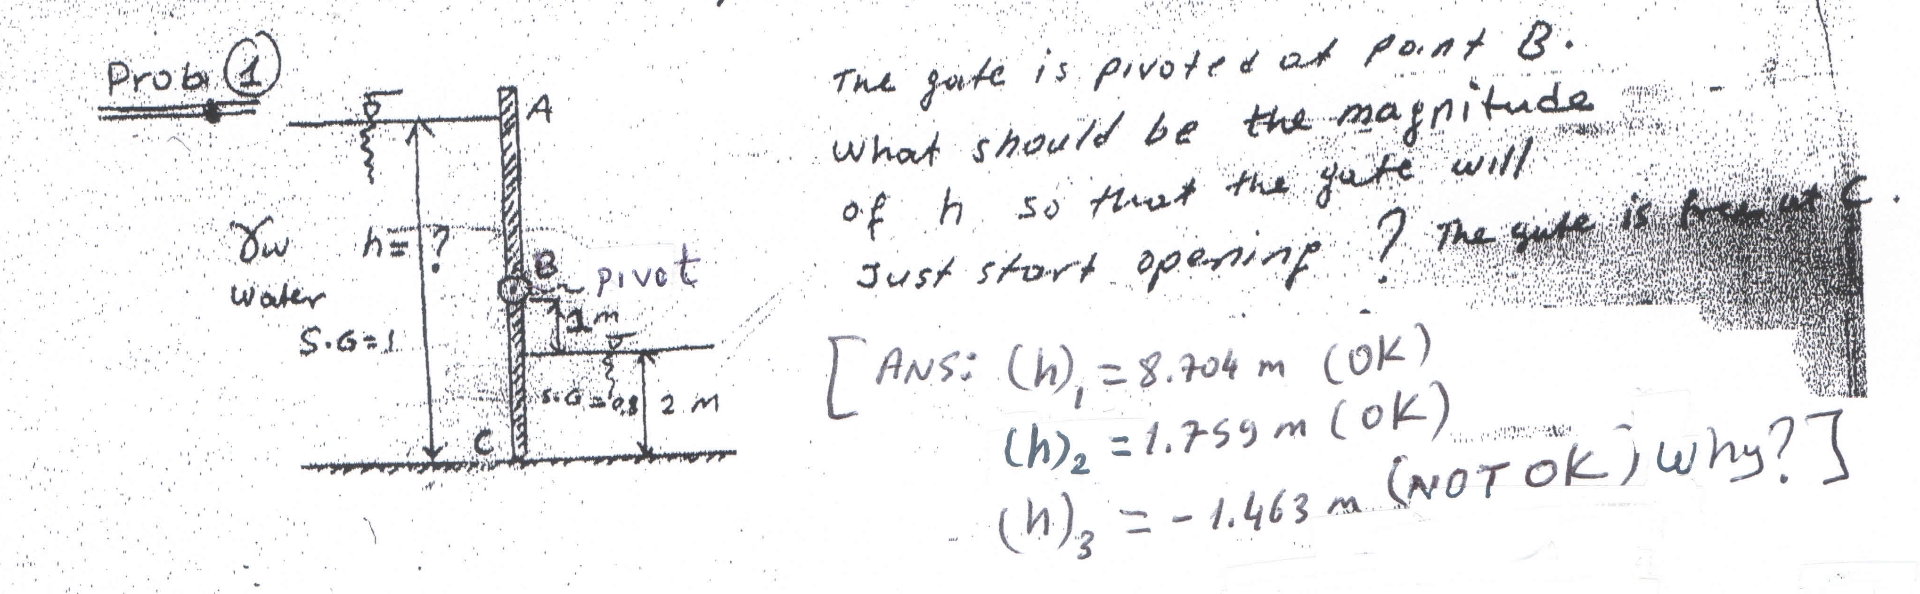 Prob. 1
The gate is pivoted at point B.
What should be the magnitude
of h so that the gate will
Just start opening ? The gate is free at C.
A
γw h=?
Water
S.G=1
B
pivot
1m
S.G=0.8
2 m
C
[ANS: (h)₁ = 8.704 m (OK)
(h)₂ = 1.759 m (OK)
(h)₃ = -1.463 m (NOT OK) Why?]